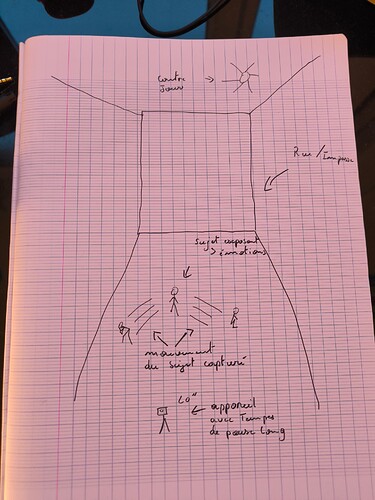 contre
Jour
Rue/Impasse
Sujet exposant
> émotions
mouvement
du sujet capturé
appareil
avec Temps
de pause long